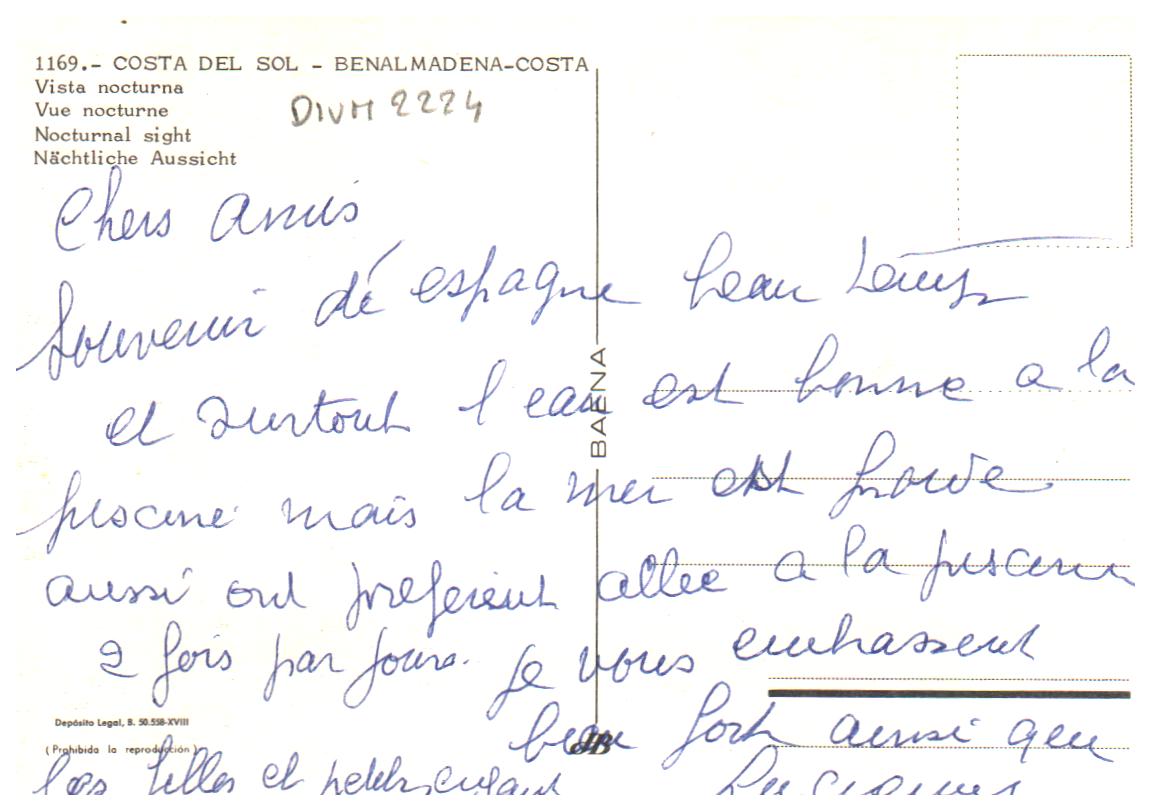 1169.- COSTA DEL SOL - BENALMADENA-COSTA
Vista nocturna
Vue nocturne
Nocturnal sight
Nächtliche Aussicht
DIVM 2224
Chers amis
Souvenir dé espagne beau temps
et surtout l eau est bonne a la
piscine mais la mer est froide
aussi ont preferent allee a la piscine
2 fois par jours. je vous embrassent
bien fort ainsi que
les filles et petits enfant
BAENA
Depósito Legal, B. 50.558-XVIII
(Prohibida la reproducción)
JB